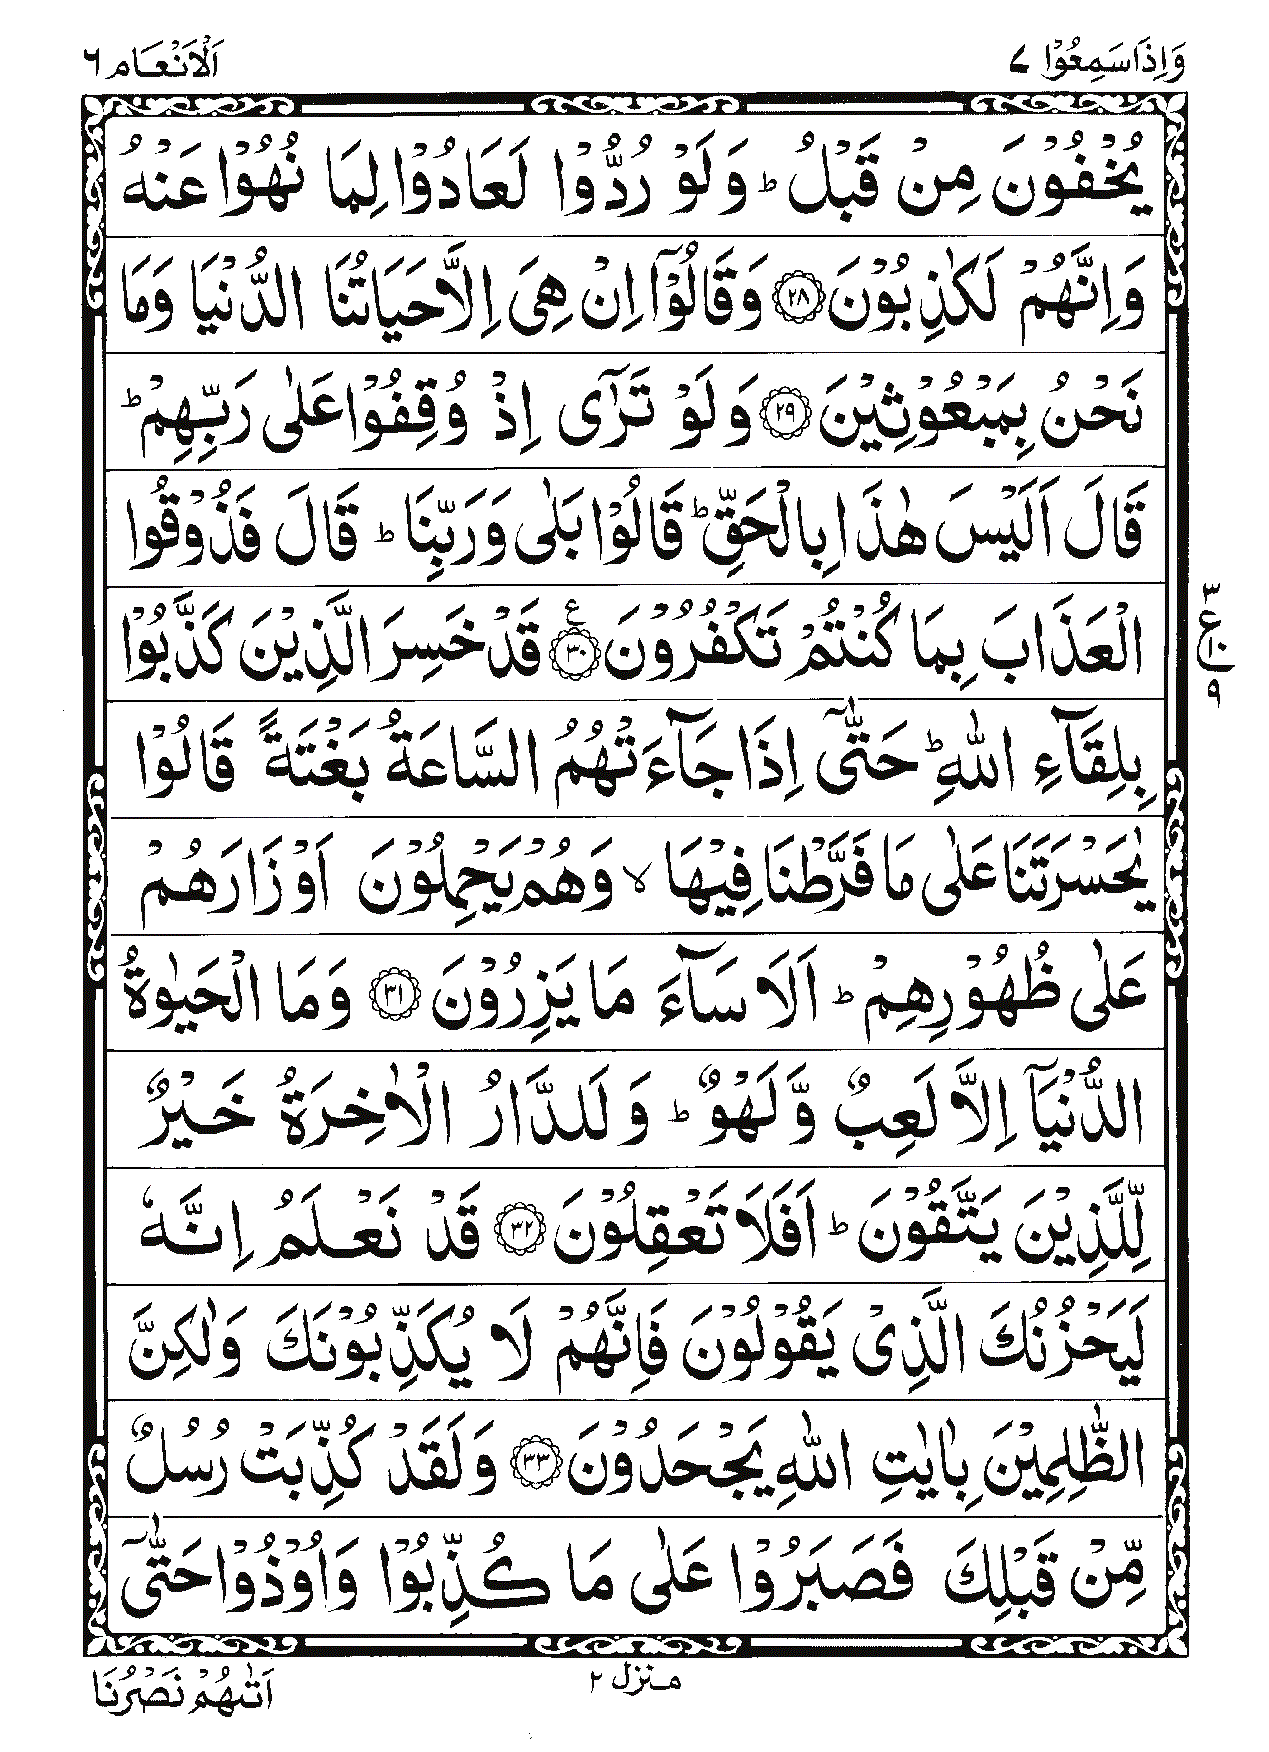 وَاِذَاسَمِعُوْا ٧
اَلْاَنْعَام ٦
يُخْفُوْنَ مِنْ قَبْلُ ؕ وَلَوْ رُدُّوْا لَعَادُوْا لِمَا نُهُوْا عَنْهُ
وَاِنَّهُمْ لَكٰذِبُوْنَ ﴿٢٨﴾ وَقَالُوْۤا اِنْ هِىَ اِلَّا حَيَاتُنَا الدُّنْيَا وَمَا
نَحْنُ بِمَبْعُوْثِيْنَ ﴿٢٩﴾ وَلَوْ تَرٰٓى اِذْ وُقِفُوْا عَلٰى رَبِّهِمْ ؕ
قَالَ اَلَيْسَ هٰذَا بِالْحَقِّ ؕ قَالُوْا بَلٰى وَرَبِّنَا ؕ قَالَ فَذُوْقُوا
الْعَذَابَ بِمَا كُنْتُمْ تَكْفُرُوْنَ ﴿٣٠﴾ ع قَدْ خَسِرَ الَّذِيْنَ كَذَّبُوْا
٣
ع ١٠
٩
بِلِقَآءِ اللّٰهِ ؕ حَتّٰۤى اِذَا جَآءَتْهُمُ السَّاعَةُ بَغْتَةً قَالُوْا
يٰحَسْرَتَنَا عَلٰى مَا فَرَّطْنَا فِيْهَا ۙ وَهُمْ يَحْمِلُوْنَ اَوْزَارَهُمْ
عَلٰى ظُهُوْرِهِمْ ؕ اَلَا سَآءَ مَا يَزِرُوْنَ ﴿٣١﴾ وَمَا الْحَيٰوةُ
الدُّنْيَاۤ اِلَّا لَعِبٌ وَّلَهْوٌ ؕ وَلَلدَّارُ الْاٰخِرَةُ خَيْرٌ
لِّلَّذِيْنَ يَتَّقُوْنَ ؕ اَفَلَا تَعْقِلُوْنَ ﴿٣٢﴾ قَدْ نَعْلَمُ اِنَّهٗ
لَيَحْزُنُكَ الَّذِىْ يَقُوْلُوْنَ فَاِنَّهُمْ لَا يُكَذِّبُوْنَكَ وَلٰكِنَّ
الظّٰلِمِيْنَ بِاٰيٰتِ اللّٰهِ يَجْحَدُوْنَ ﴿٣٣﴾ وَلَقَدْ كُذِّبَتْ رُسُلٌ
مِّنْ قَبْلِكَ فَصَبَرُوْا عَلٰى مَا كُذِّبُوْا وَاُوْذُوْا حَتّٰۤى
منزل ٢
اَتٰىهُمْ نَصْرُنَا